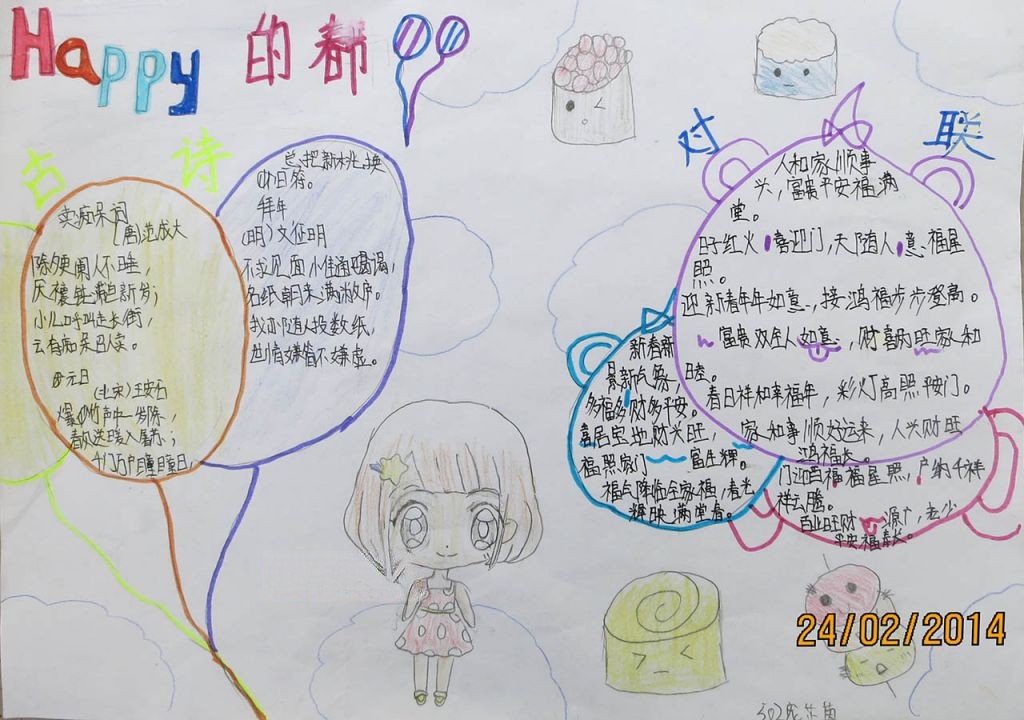 Happy 的都
古诗
卖痴呆词
(唐)范成大
除夕更阑人不睡，
厌禳钝滞迎新岁；
小儿呼叫走长街，
云有痴呆召人买。
元日
(北宋)王安石
爆竹声中一岁除，
春风送暖入屠苏；
千门万户瞳瞳日，
总把新桃换
旧符。
拜年
(明)文征明
不求见面惟通谒，
名纸朝来满敝庐。
我亦随人投数纸，
世情嫌简不嫌虚。
对联
人和家顺事
兴，富贵平安福满
堂。
日子红火喜迎门，天随人意福星
照。
迎新春年年如意，接鸿福步步登高。
富贵双全人如意，财喜两旺家和
睦。
春日祥和幸福年，彩灯高照平安门。
家和事顺好运来，人兴财旺
鸿福长。
门迎四福福星照，户纳千祥
祥云腾。
百业旺财源广，老少
平安福寿长。
新春新
景新气象，
多福多财多平安。
喜居宝地财兴旺，
福照家门富生辉。
福气降临全家福，春光
辉映满堂春。
24/02/2014